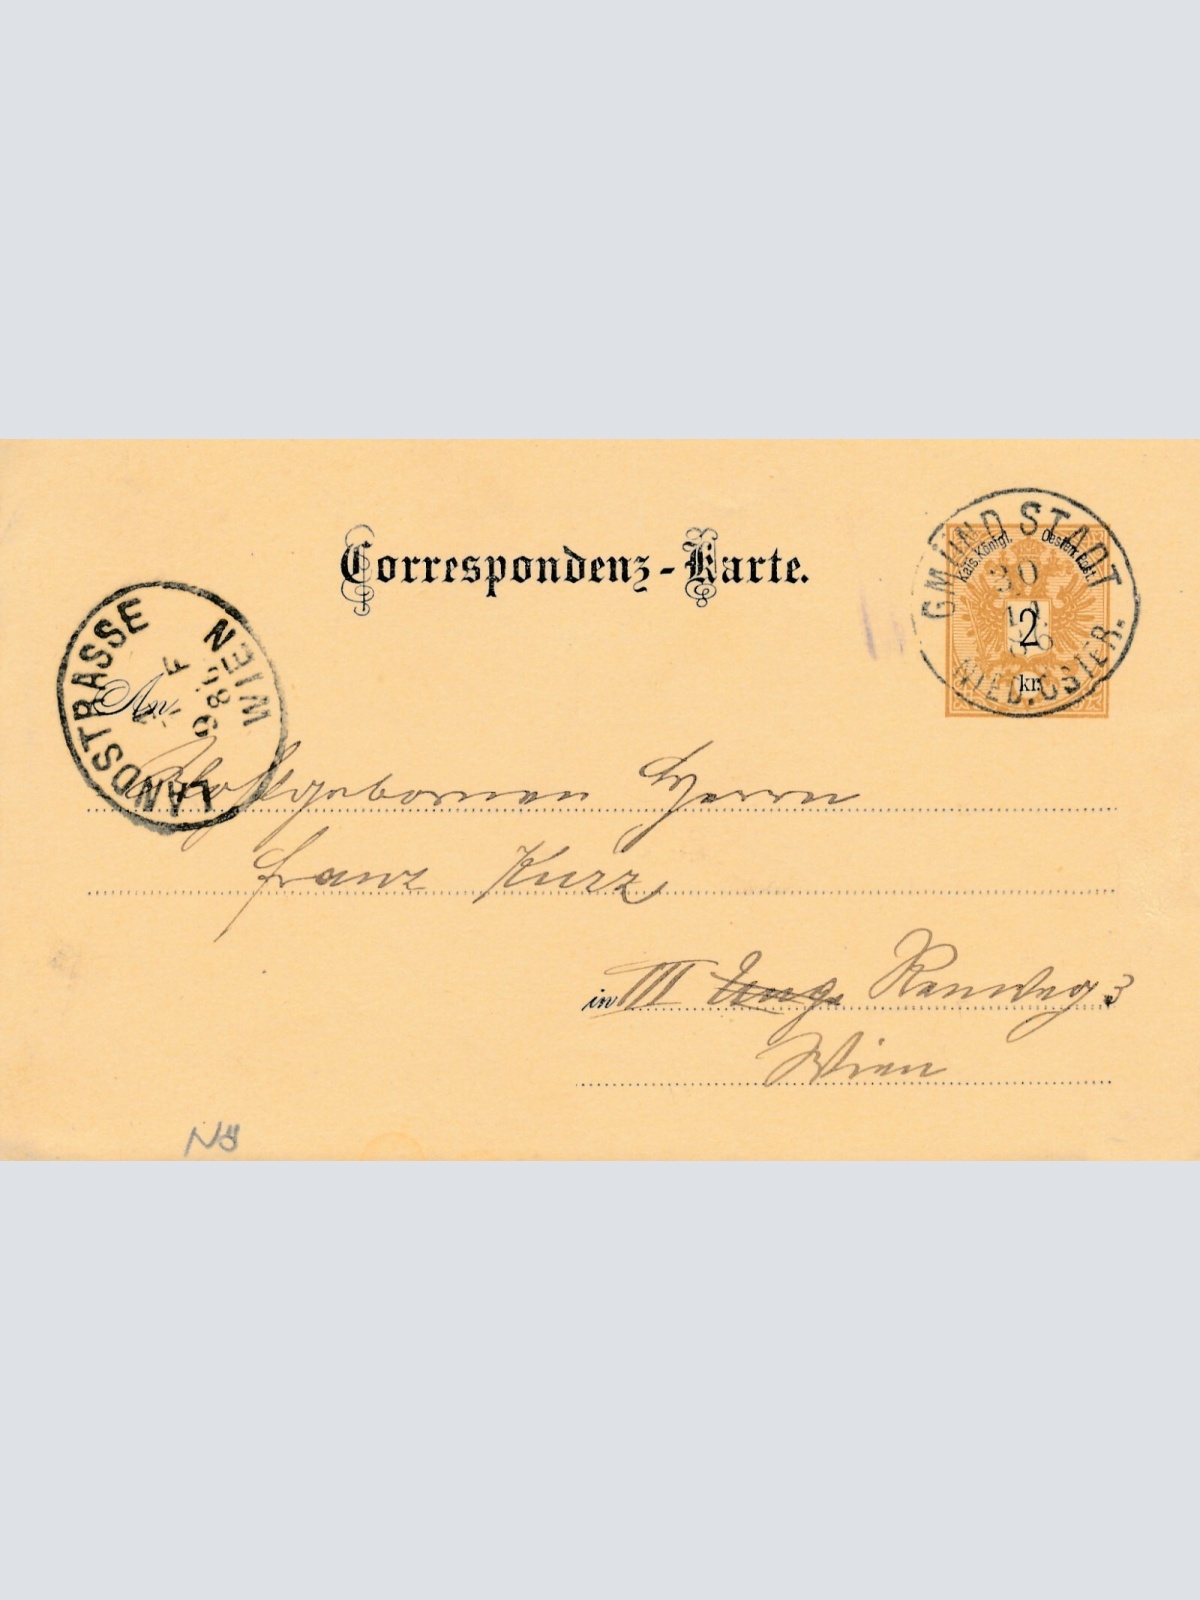 Correspondenz-Karte.
GMÜND STADT
30
11
86
NIED. ÖSTER.
Kais. Königl. Oesterr. Post.
2
kr.
LANDSTRASSE
WIEN
F
86
An
Wohlgebornen Herrn
Franz Kurz
in III Ung. Rennweg 3
Wien
NÖ